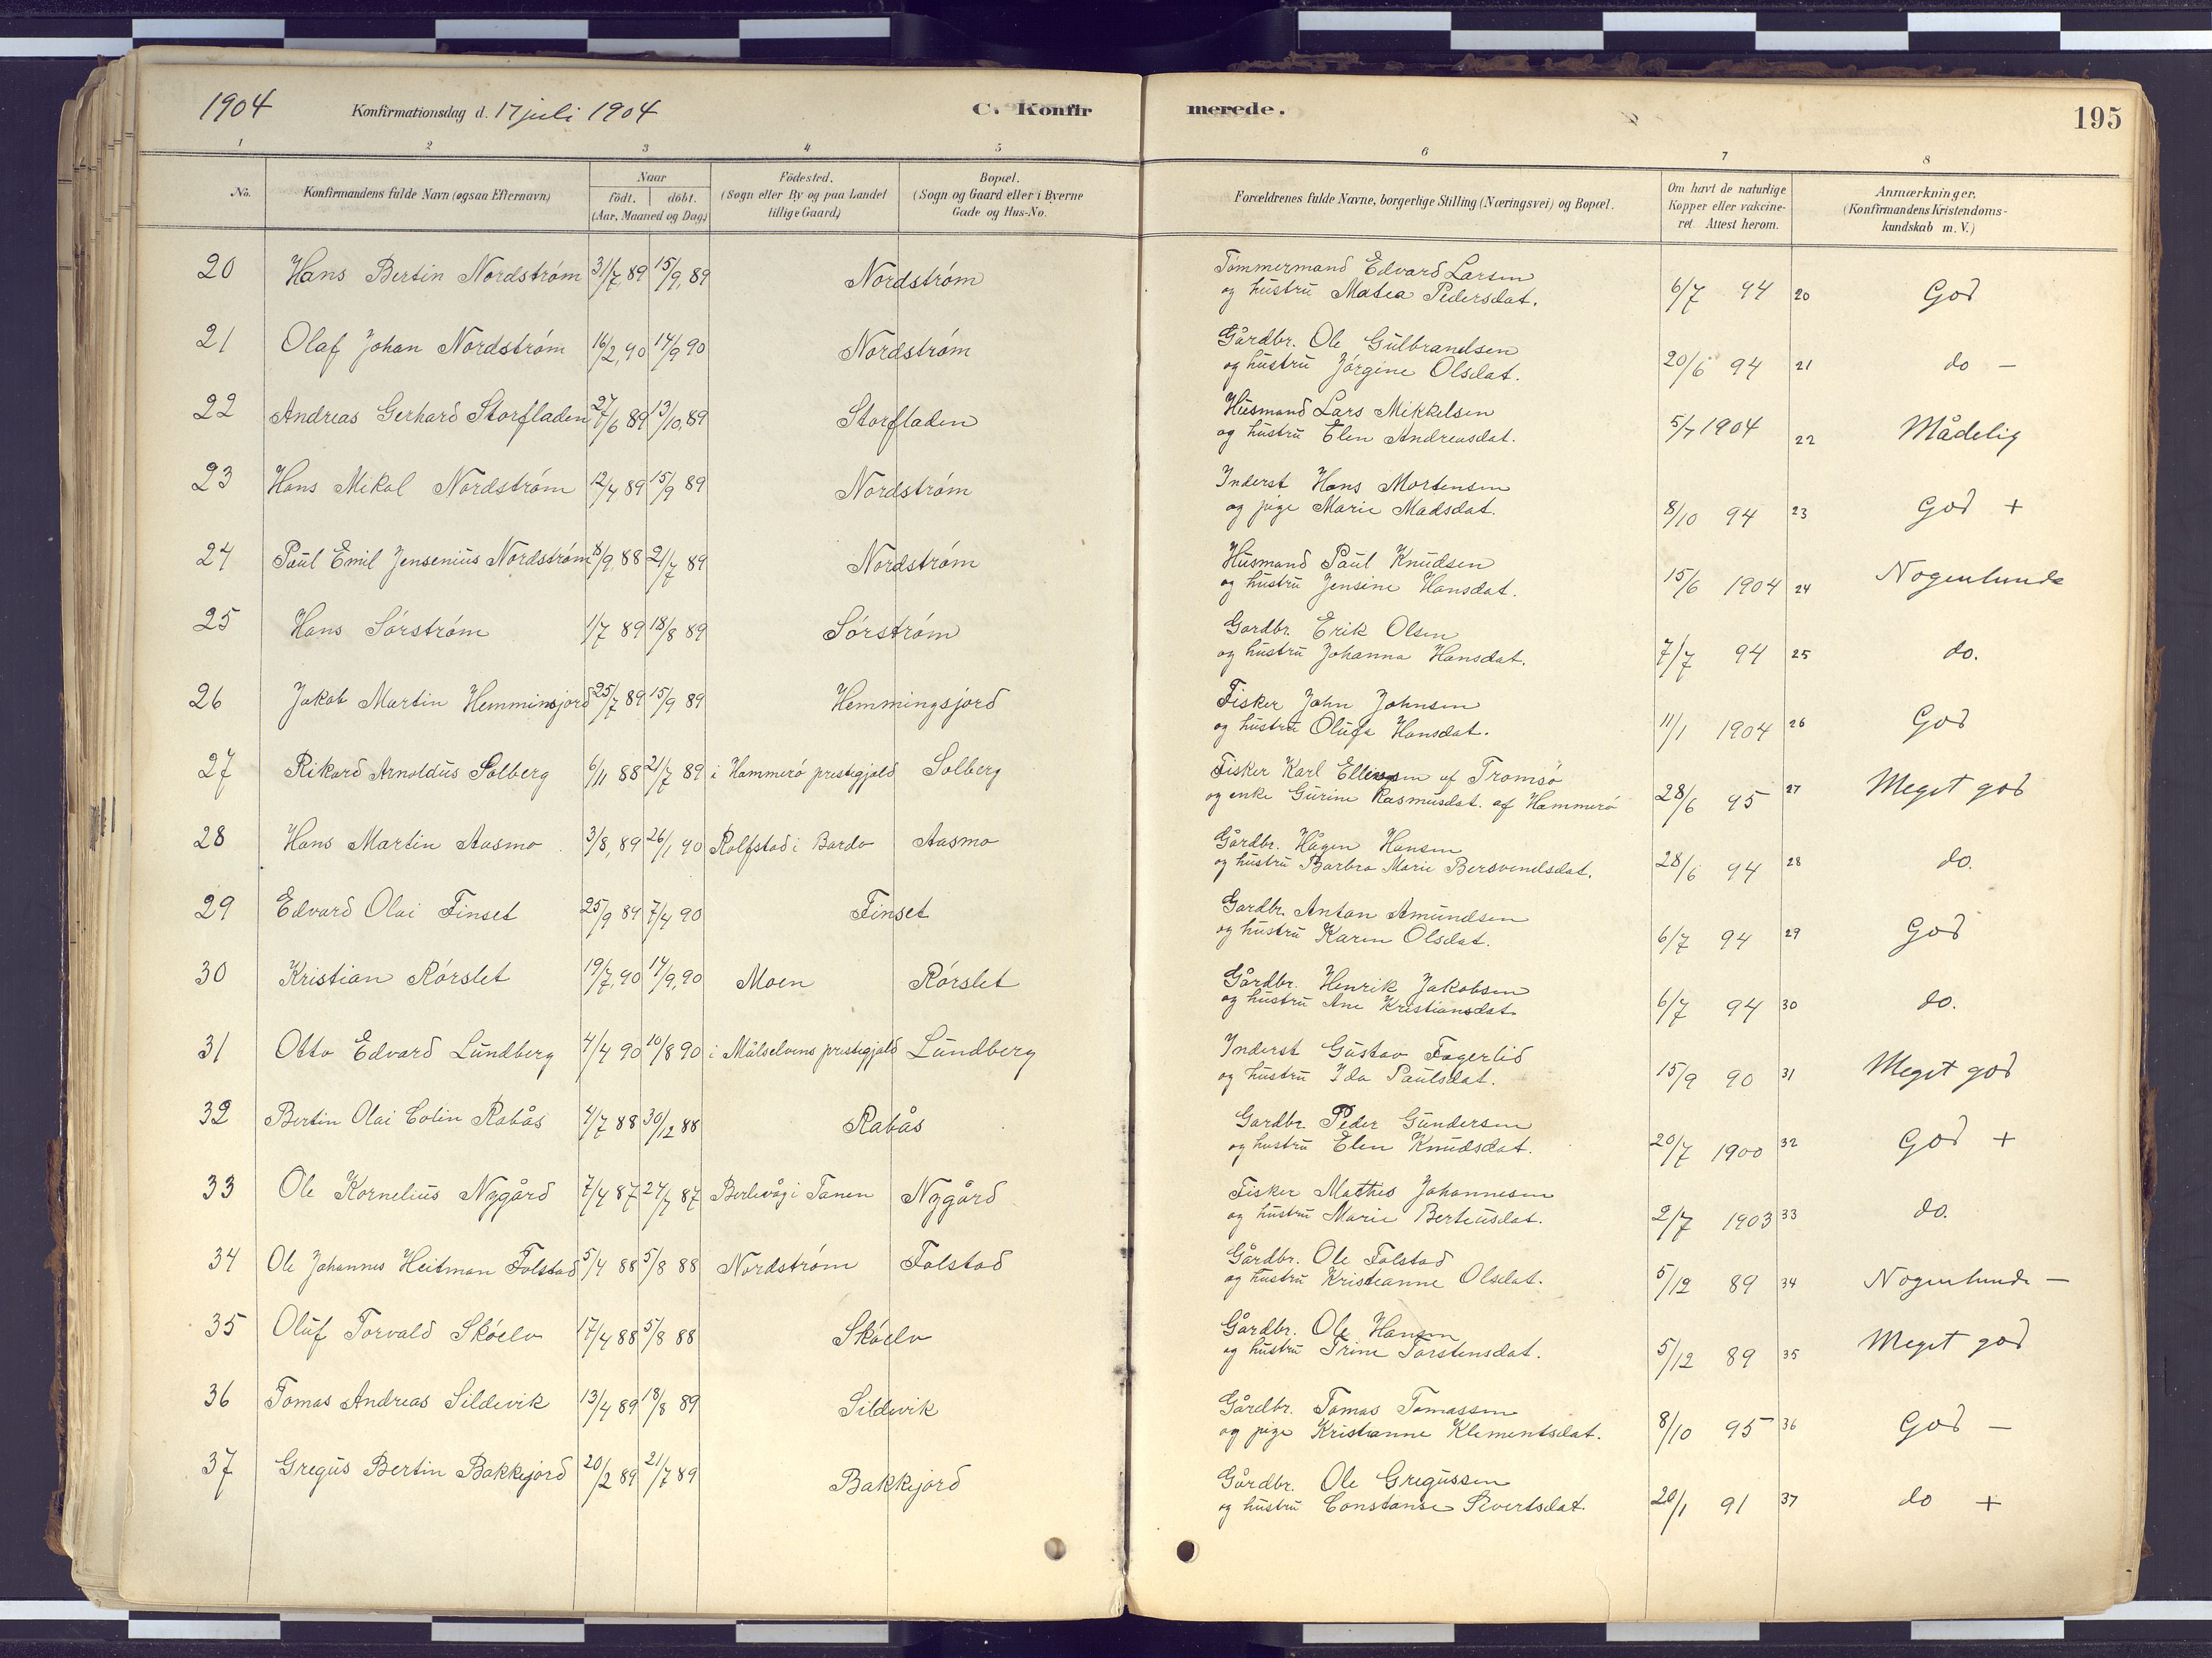 1904 Konfirmationsdag d. 17 juli 1904 C. Konfirmerede. 195
1 2 3 4 5 6 7 8
No. Konfirmandens fulde Navn (ogsaa Efternavn) Naar født. døbt. (Aar, Maaned og Dag) Fødested. (Sogn eller By og paa Landet tillige Gaard) Bopæl. (Sogn og Gaard eller i Byerne Gade og Hus-No. Forældrenes fulde Navne, borgerlige Stilling (Næringsvei) og Bopæl. Om havt de naturlige Kopper eller vakcineret Attest herom. Anmærkninger, (Konfirmandens Kristendomskundskab m. V.)
20 Hans Bertin Nordstrøm 31/7, 89 15/9, 89 Nordstrøm Tømmermand Edvard Larsen
og hustru Matea Pedersdat. 6/7 94 20 God
21 Olaf Johan Nordstrøm 16/2, 90 14/9 90 Nordstrøm Gårdbr. Ole Gulbrandsen
og hustru Jørgine Olsdat. 20/6 94 21 do —
22 Andreas Gerhard Storfladen 27/6 89 13/10, 89 Storfladen Husmand Lars Mikkelsen
og hustru Elen Andreasdat. 5/7 1904 22 Mådelig
23 Hans Mikal Nordstrøm 12/4 89 15/9 89 Nordstrøm Inderst Hans Mortensen
og pige Marie Madsdat. 8/10 94 23 God +
24 Paul Emil Jensenius Nordstrøm 8/9, 88 21/7 89 Nordstrøm Husmand Paul Knudsen
og hustru Jensine Hansdat. 15/6 1904 24 Nogenlunde
25 Hans Sørstrøm 1/7 89 18/8 89 Sørstrøm Gardbr. Erik Olsen
og hustru Johanna Hansdat. 7/7 94 25 do.
26 Jakob Martin Hemminsjord 25/7 89 15/9 89 Hemmingsjord Fisker John Johnsen
og hustru Olufa Hansdat. 11/1 1904 26 God
27 Rikard Arnoldus Solberg 6/11 88 21/7 89 i Hammerø prestegjeld Solberg Fisker Karl Ellingsen af Tromsø
og enke Gurine Rasmusdat. af Hammerø 28/6 95 27 Meget god
28 Hans Martin Aasmo 3/8, 89 26/1 90 Rolfstad i Bardo Aasmo Gårdbr. Hågen Hansen
og hustru Barbro Marie Bersvendsdat. 28/6 94 28 do.
29 Edvard Olai Finset 25/9 89 7/4 90 Finset Gardbr. Anton Amundsen
og hustru Karen Olsdat. 6/7 94 29 God
30 Kristian Rørslet 19/7, 90 14/9, 90 Moen Rørslet Gårdbr. Henrik Jakobsen
og hustru Ane Kristiansdat. 6/7 94 30 do.
31 Otto Edvard Lundberg 4/4 90 10/8 90 i Målselvens prestegjeld Lundberg Inderst Gustav Fagerlid
og hustru Ida Paulsdat. 15/9 90 31 Meget god
32 Bertin Olai Colin Rabås 4/7 88 30/12 88 Rabås Gardbr. Peder Gundersen
og hustru Elen Knudsdat. 20/7 1900 32 God +
33 Ole Kornelius Nygård 7/4 87 24/7 87 Berlevåg i Tanen Nygård Fisker Mathis Johannesen
og hustru Marie Berteusdat. 2/7 1903 33 do.
34 Ole Johannes Heitman Folstad 5/4 88 5/8 88 Nordstrøm Folstad Gårdbr. Ole Folstad
og hustru Kristianne Olsdat. 5/12 89 34 Nogenlunde —
35 Oluf Torvald Skøelv 17/4 88 5/8 88 Skøelv Gårdbr. Ole Hansen
og hustru Trine Torstensdat. 5/12 89 35 Meget god
36 Tomas Andreas Sildevik 13/4 89 18/8 89 Sildevik Gårdbr. Tomas Tomassen
og pige Kristianne Klementsdat. 8/10 95 36 God —
37 Gregus Bertin Bakkejord 20/2 89 21/7 89 Bakkejord Gårdbr. Ole Gregussen
og hustru Constanse Sivertsdat. 20/1 91 37 do +